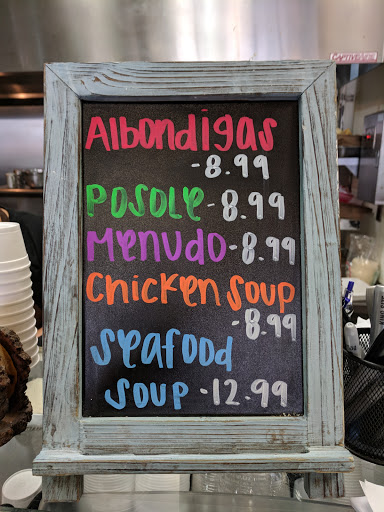 Albondigas
-8.99
Posole -8.99
Menudo -8.99
Chicken Soup
-8.99
Seafood
Soup -12.99